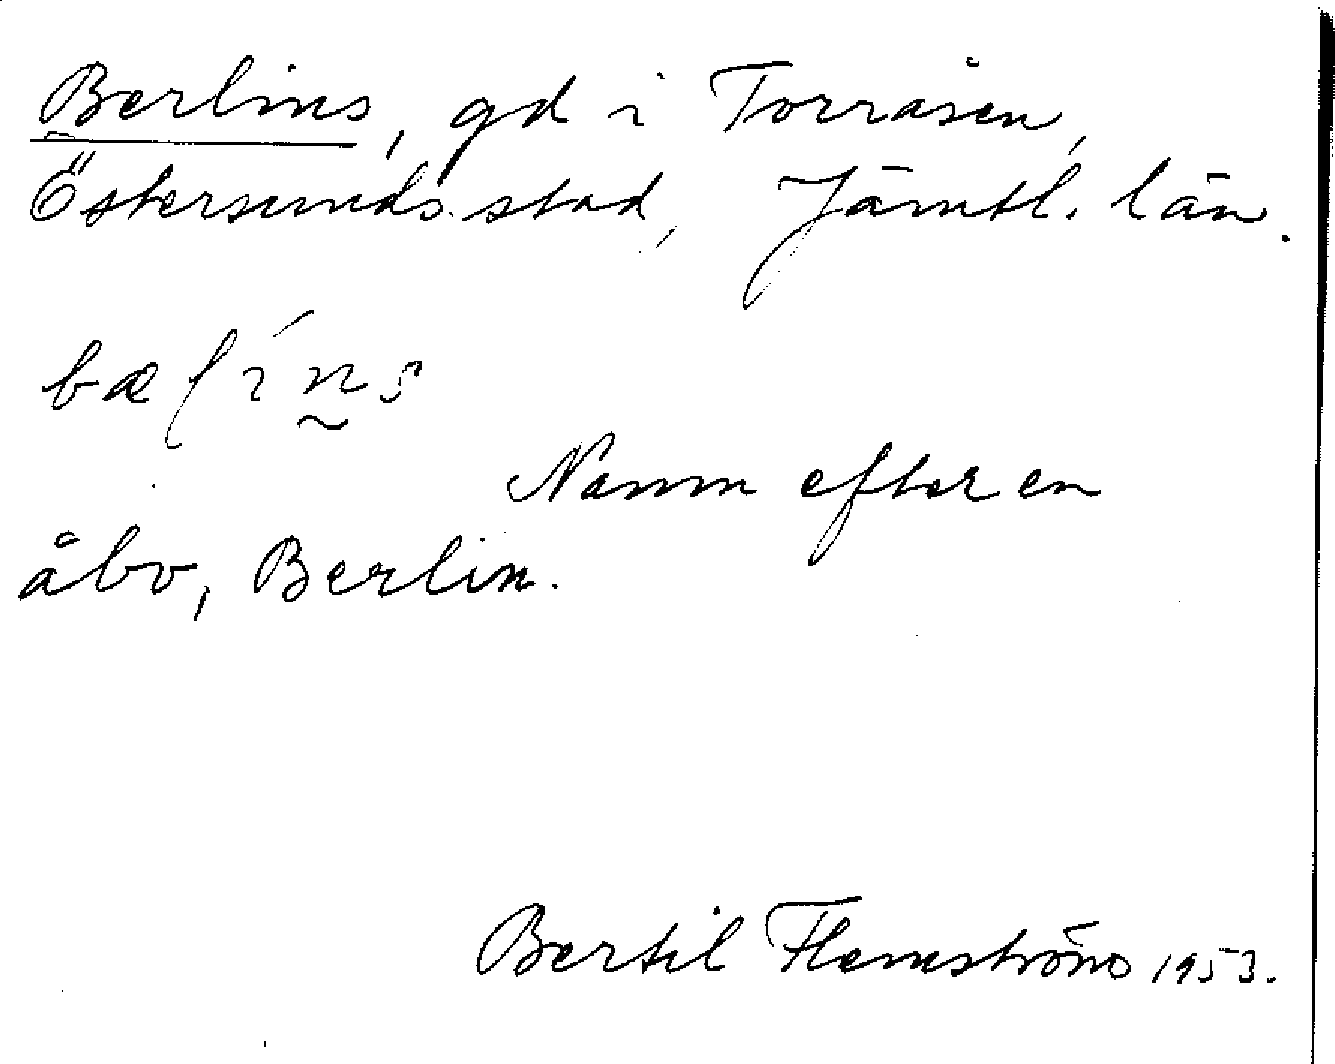 Berlins, gd i Torråsen,
Östersunds stad, Jämtl. län.
Namn efter en
åbo, Berlin.
Bertil Flemström 1953.